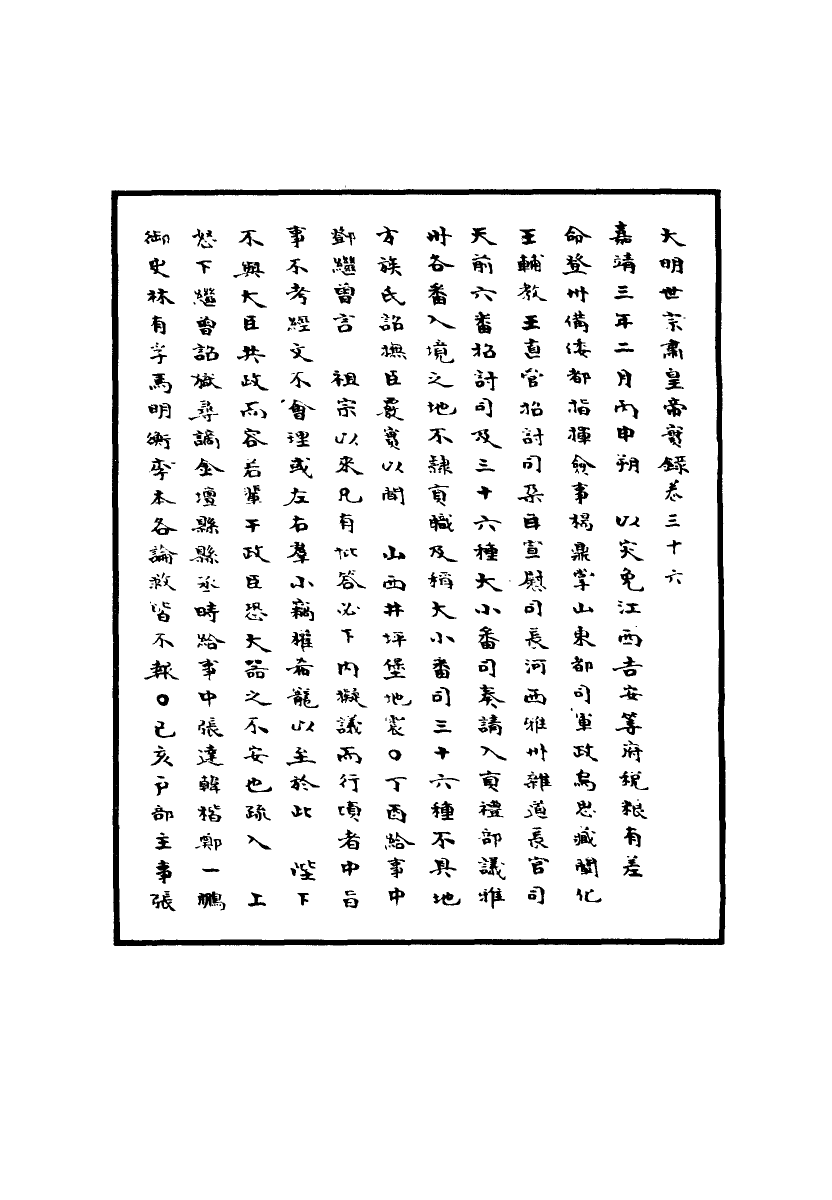 大明世宗肅皇帝實錄卷三十六
嘉靖三年二月丙申朔　以災免江西吉安等府稅粮有差
命登州備倭都指揮僉事楊鼎掌山東都司軍政烏思藏闡化
王輔教王直管招討司朶甘宣慰司長河西雅州雜道長官司
天前六番招討司及三十六種大小番司奏請入貢禮部議雅
州各番入境之地不隸貢職及稱大小番司三十六種不具地
方族氏詔撫臣覈實以聞　山西井坪堡地震○丁酉給事中
鄧繼曾言　祖宗以來凡有批答必下內擬議而行頃者中旨
事不考經文不會理或左右羣小竊權希寵以至於此　陛下
不與大臣共政而容若輩干政臣恐大器之不安也疏入　上
怒下繼曾詔獄尋謫金壇縣縣丞時給事中張逵韓楷鄭一鵬
御史林有孚馬明衡季本各論救皆不報○己亥戶部主事張